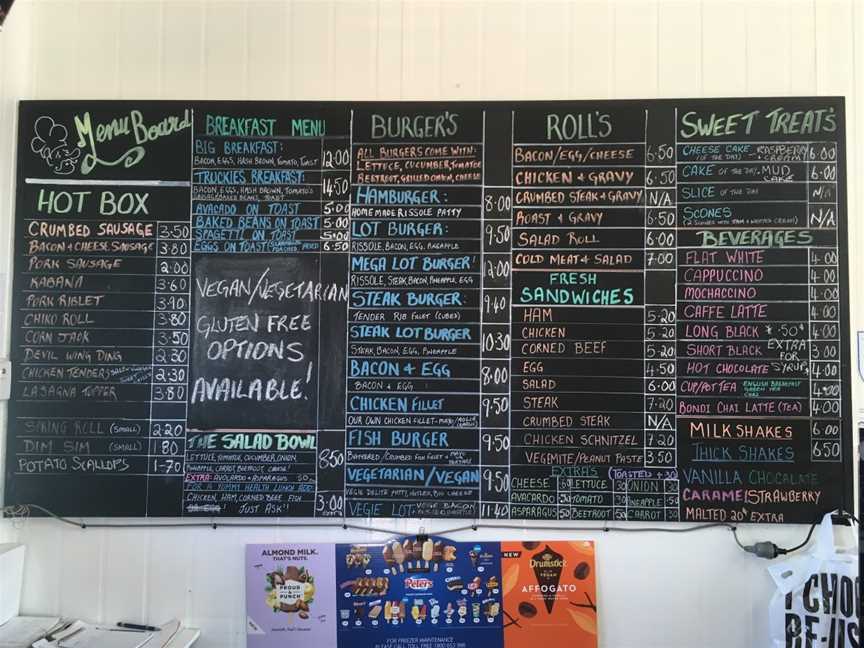 Menu Board
HOT BOX
CRUMBED SAUSAGE 3.50
BACON & CHEESE SAUSAGE 3.80
PORK SAUSAGE 2.00
KABANA 3.60
PORK RIBLET 3.90
CHIKO ROLL 3.80
CORN JACK 3.50
DEVIL WING DING 2.30
CHICKEN TENDERS 2.30
LASAGNA TOPPER 3.80
SPRING ROLL (SMALL) 2.20
DIM SIM (SMALL) 1.80
POTATO SCALLOPS 1.70
BREAKFAST MENU
BIG BREAKFAST:
BACON, EGGS, HASH BROWN, TOMATO, TOAST 12.00
TRUCKIES BREAKFAST:
BACON, EGGS, HASH BROWN, TOMATO'S 14.50
BEANS, TOAST
AVACADO ON TOAST 5.00
BAKED BEANS ON TOAST 5.00
SPAGETTI ON TOAST 5.00
EGGS ON TOAST 6.50
VEGAN/VEGETARIAN
GLUTEN FREE
OPTIONS
AVAILABLE!
THE SALAD BOWL
LETTUCE, TOMATOE, CUCUMBER, ONION,
PINEAPPLE, CARROT, BEETROOT, CHEESE! 8.50
EXTRA: AVOCARDO & ASPARAGUS 50
FOR A YUMMY HEALTH LUNCH ADD:
CHICKEN, HAM, CORNED BEEF, FISH 3.00
JUST ASK!!
BURGER'S
ALL BURGERS COME WITH:
LETTUCE, CUCUMBER, TOMATOE
BEETROOT, GRILLED ONION, CHEESE
HAMBURGER: 8.00
HOME MADE RISSOLE PATTY
LOT BURGER: 9.50
RISSOLE, BACON, EGG, PINEAPPLE
MEGA LOT BURGER! 12.00
RISSOLE, STEAK, BACON, PINEAPPLE, EGG
STEAK BURGER: 9.40
TENDER RIB FILLET (CUBED)
STEAK LOT BURGER 10.30
STEAK, BACON, EGG, PINEAPPLE
BACON & EGG 8.00
BACON & EGG
CHICKEN FILLET 9.50
OUR OWN CHICKEN FILLET - MAYO/AIOLI
FISH BURGER 9.50
BATTERED/CRUMBED FISH FILLET MAYO OR TARTARE
VEGETARIAN/VEGAN 9.50
VEGIE DELITE PATTY, NUTTLEX, BIO CHEESE
VEGIE LOT + VEGE BACON 11.40
ROLL'S
BACON/EGG/CHEESE 6.50
CHICKEN & GRAVY 6.50
CRUMBED STEAK & GRAVY N/A
ROAST & GRAVY 6.50
SALAD ROLL 6.00
COLD MEAT & SALAD 7.00
FRESH
SANDWICHES
HAM 5.20
CHICKEN 5.20
CORNED BEEF 5.20
EGG 4.50
SALAD 6.00
STEAK 7.20
CRUMBED STEAK N/A
CHICKEN SCHNITZEL 7.20
VEGEMITE/PEANUT PASTE 3.50
EXTRAS (TOASTED + 30)
CHEESE 50 LETTUCE 30 ONION 30
AVACARDO 50 TOMATO 30 PINEAPPLE 50
ASPARAGUS 50 BEETROOT 50 CARROT 30
SWEET TREAT'S
CHEESE CAKE - RASPBERRY
(OF THE DAY) + CREAM 6.00
CAKE OF THE DAY - MUD CAKE 6.00
SLICE OF THE DAY N/A
SCONES
(2 SCONES WITH JAM & WHIPPED CREAM) N/A
BEVERAGES
FLAT WHITE 4.00
CAPPUCCINO 4.00
MOCHACCINO 4.00
CAFFE LATTE 4.00
LONG BLACK 4.00
SHORT BLACK 3.00
* .50¢ EXTRA FOR SYRUP
HOT CHOCOLATE 4.00
CUP/POT TEA ENGLISH BREAKFAST GREEN TEA CHAI 4.00
BONDI CHAI LATTE (TEA) 4.00
MILK SHAKES 6.00
THICK SHAKES 6.50
VANILLA CHOCALATE
CARAMEL STRAWBERRY
MALTED 20¢ EXTRA
ALMOND MILK.
THAT'S NUTS.
PROUD & PUNCH
Peters
FOR FREEZER MAINTENANCE
PLEASE CALL TOLL FREE 1800 653 998
NEW
Drumstick
VEGAN
AFFOGATO
I CHO
RE-US